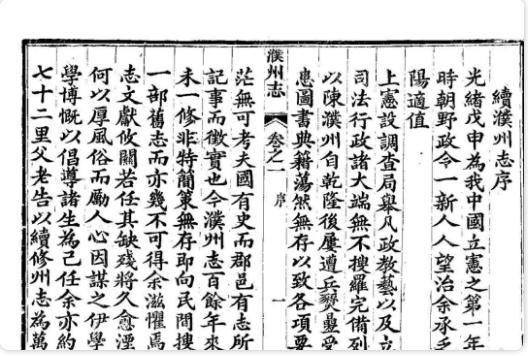 續濮州志序
光緒戊申為我中國立憲之第一年
時朝野政令一新人人望治余承乏
陽適值
上憲設調查局舉凡政教藝以及立
司法行政諸大端無不搜羅完備列
以陳濮州自乾隆後屢遭兵燹疊受
患圖書典籍蕩然無存以致各項要
濮州志 卷之一 序 一
茫無可考夫國有史而郡邑有志所
記事而徵實也今濮州志百餘年來
未一修非特簡策無存即向民間搜
一部舊志而亦幾不可得余滋懼焉
志文獻攸關若任其缺殘將久愈湮
何以厚風俗而勵人心因謀之伊學
學博慨以倡導諸生為己任余亦約
七十二里父老告以續修州志為萬